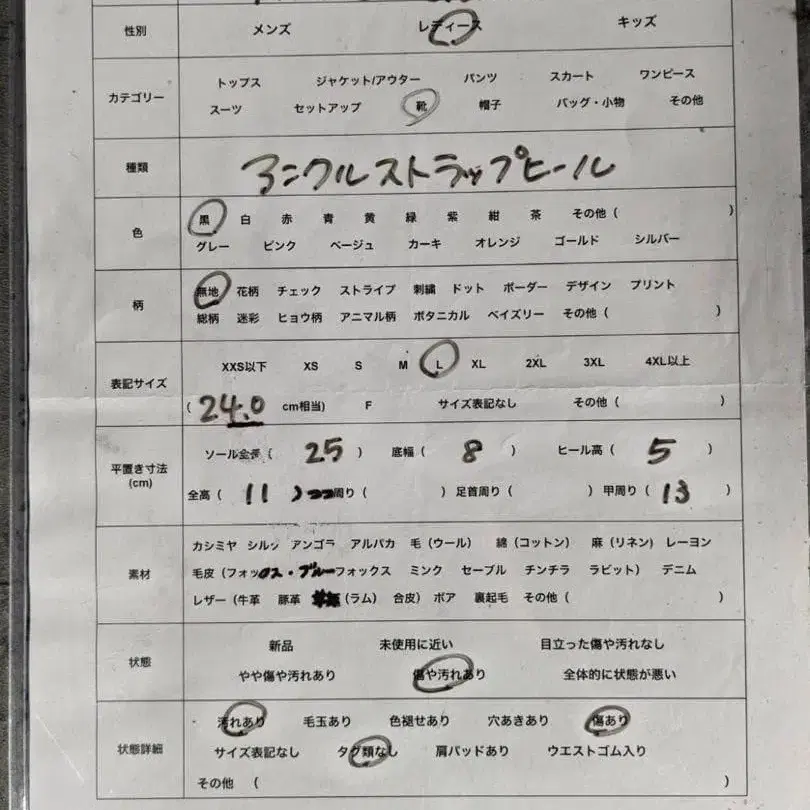 性別 メンズ レディース キッズ
カテゴリー トップス ジャケット/アウター パンツ スカート ワンピース
スーツ セットアップ 靴 帽子 バッグ・小物 その他
種類 アンクルストラップヒール
色 黒 白 赤 青 黄 緑 紫 紺 茶 その他 ( )
グレー ピンク ベージュ カーキ オレンジ ゴールド シルバー
柄 無地 花柄 チェック ストライプ 刺繍 ドット ボーダー デザイン プリント
総柄 迷彩 ヒョウ柄 アニマル柄 ボタニカル ペイズリー その他 ( )
表記サイズ XXS以下 XS S M L XL 2XL 3XL 4XL以上
( 24.0 cm相当) F サイズ表記なし その他 ( )
平置き寸法 (cm) ソール全長 ( 25 ) 底幅 ( 8 ) ヒール高 ( 5 )
全高 ( 11 ) 周り ( ) 足首周り ( ) 甲周り ( 13 )
素材 カシミヤ シルク アンゴラ アルパカ 毛 (ウール) 綿 (コットン) 麻 (リネン) レーヨン
毛皮 (フォックス・ブルーフォックス ミンク セーブル チンチラ ラビット) デニム
レザー (牛革 豚革 (ラム) 合皮) ボア 裏起毛 その他 ( )
状態 新品 未使用に近い 目立った傷や汚れなし
やや傷や汚れあり 傷や汚れあり 全体的に状態が悪い
状態詳細 汚れあり 毛玉あり 色褪せあり 穴あきあり 傷あり
サイズ表記なし タグ類なし 肩パッドあり ウエストゴム入り
その他 ( )